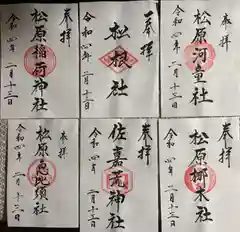 奉拝
松原稲荷神社
令和四年
二月十三日
一本
奉拝
松根社
令和四年
二月十三日
奉拝
松原河童社
令和四年
二月十三日
奉拝
松原恵比須社
令和四年
二月十三日
奉拝
佐嘉荒神社
令和四年
二月十三日
奉拝
松原梛木社
令和四年
二月十三日